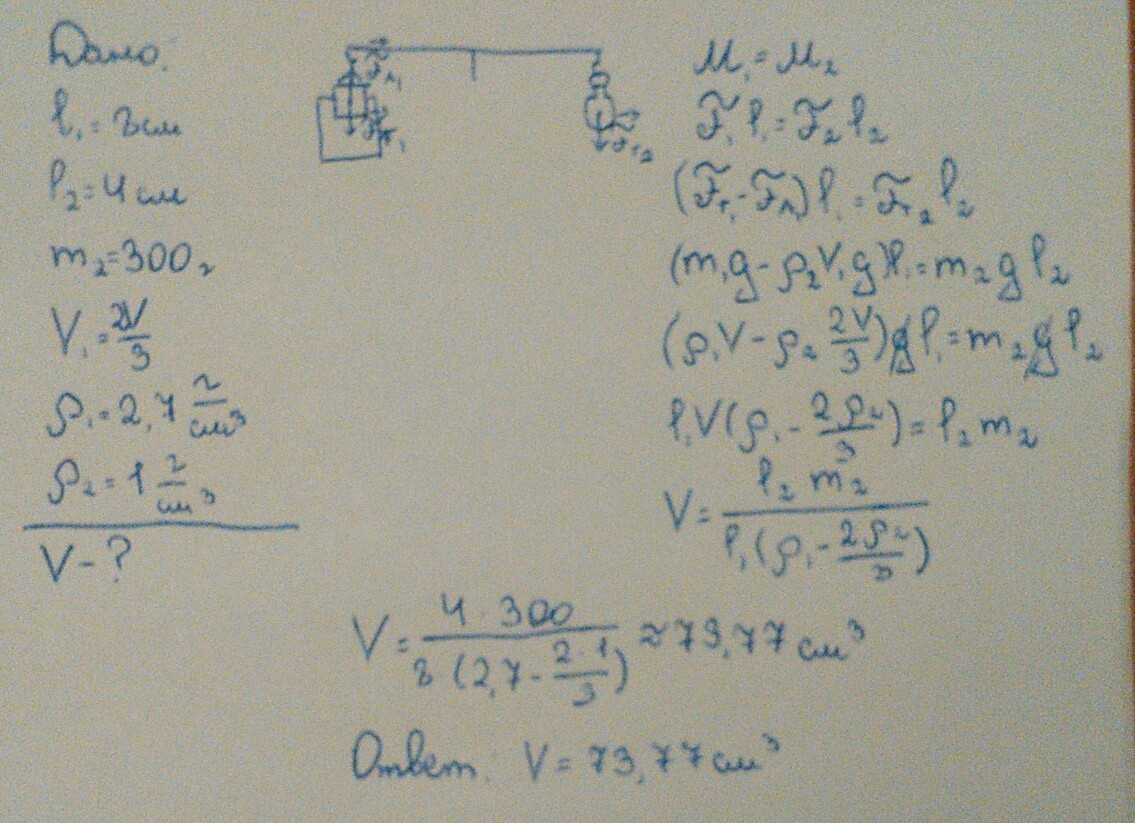 Дано:
l₁ = 8 см
l₂ = 4 см
m₂ = 300 г
V₁ = 2V/3
ρ₁ = 2,7 г/см³
ρ₂ = 1 г/см³
V - ?
F_A₁
F_т₁
F_т₂
M₁ = M₂
F₁ l₁ = F₂ l₂
(F_т₁ - F_A) l₁ = F_т₂ l₂
(m₁g - ρ₂V₁g) l₁ = m₂ g l₂
(ρ₁V - ρ₂ 2V/3) g l₁ = m₂ g l₂
l₁V(ρ₁ - 2ρ₂/3) = l₂ m₂
V = l₂ m₂ / l₁(ρ₁ - 2ρ₂/3)
V = 4 · 300 / 8 (2,7 - 2·1/3) ≈ 73,77 см³
Ответ: V = 73,77 см³